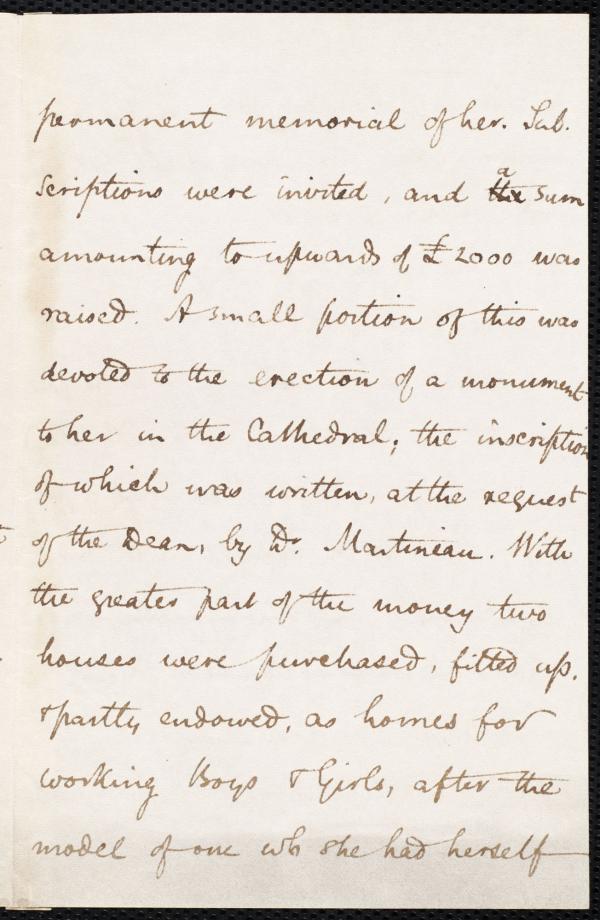 permanent memorial of her. Sub.
scriptions were invited, and the a sum
amounting to upwards of £2000 was
raised. A small portion of this was
devoted to the erection of a monument
to her in the Cathedral; the inscription
of which was written, at the request
of the Dean, by Dr. Martineau. With
the greater part of the money two
houses were purchased, fitted up,
& partly endowed, as homes for
working Boys & Girls, after the
model of one wh she had herself